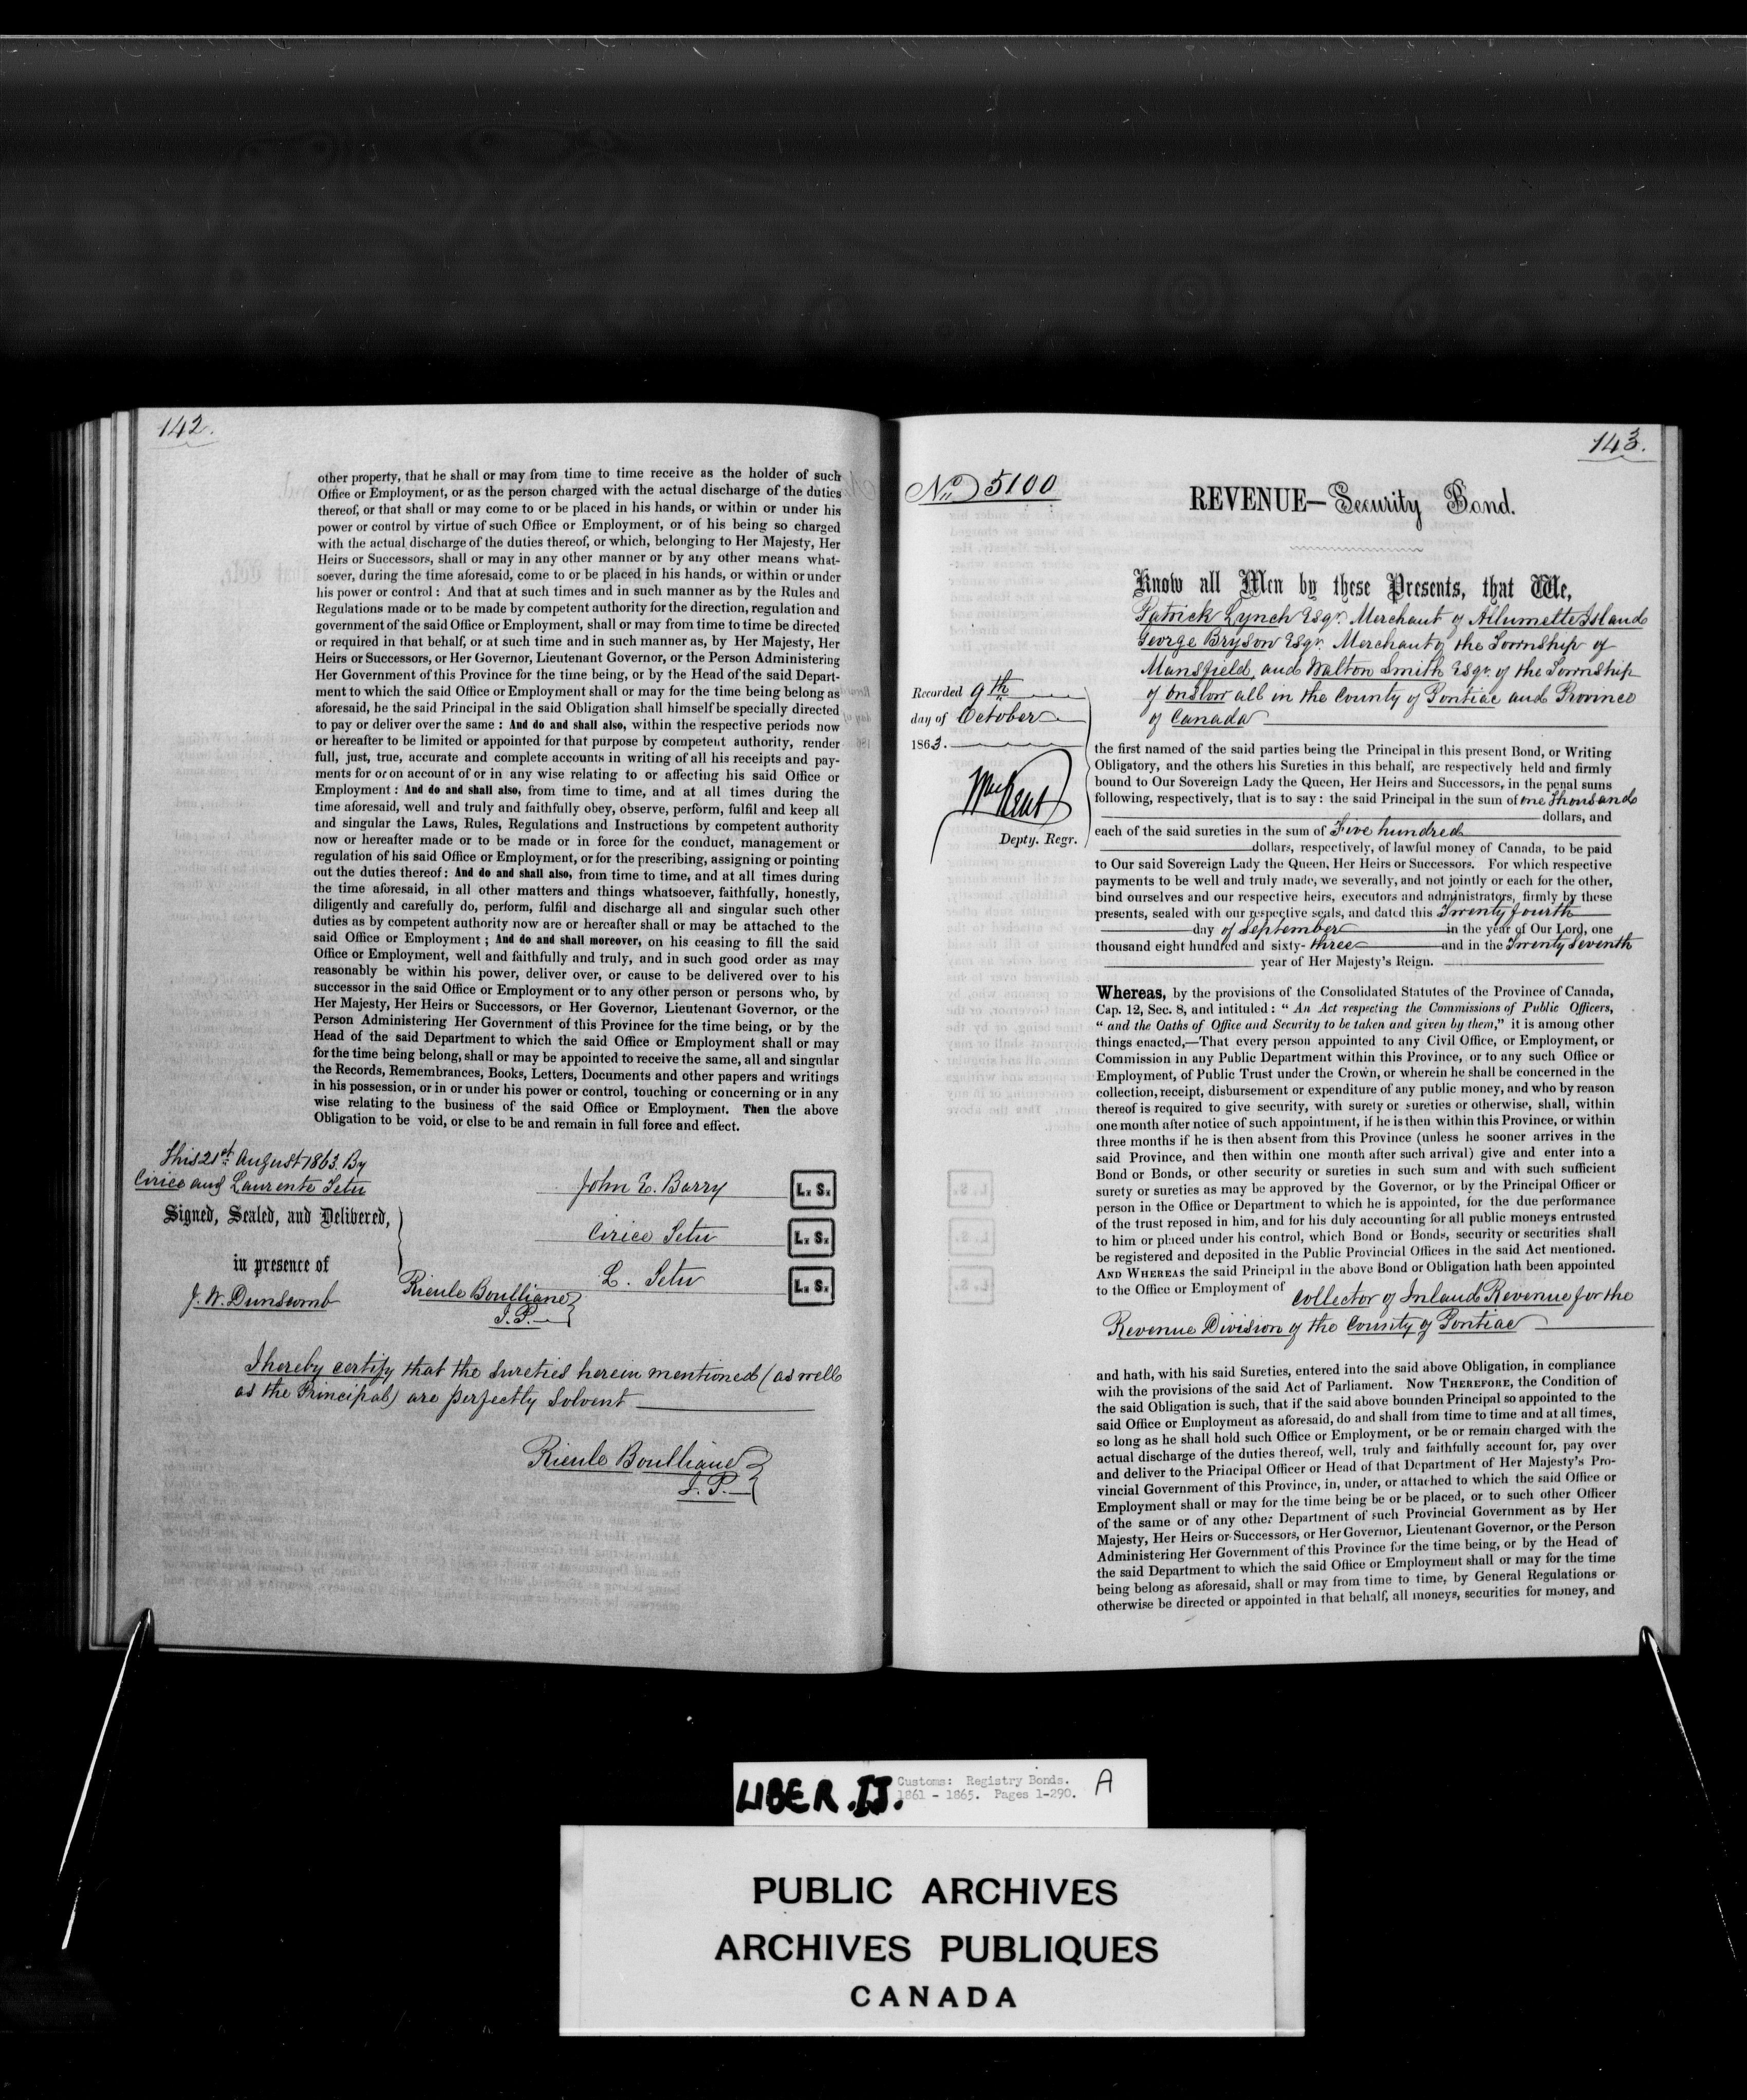 142.
other property, that he shall or may from time to time receive as the holder of such
Office or Employment, or as the person charged with the actual discharge of the duties
thereof, or that shall or may come to or be placed in his hands, or within or under his
power or control by virtue of such Office or Employment, or of his being so charged
with the actual discharge of the duties thereof, or which, belonging to Her Majesty, Her
Heirs or Successors, shall or may in any other manner or by any other means what-
soever, during the time aforesaid, come to or be placed in his hands, or within or under
his power or control : And that at such times and in such manner as by the Rules and
Regulations made or to be made by competent authority for the direction, regulation and
government of the said Office or Employment, shall or may from time to time be directed
or required in that behalf, or at such time and in such manner as, by Her Majesty, Her
Heirs or Successors, or Her Governor, Lieutenant Governor, or the Person Administering
Her Government of this Province for the time being, or by the Head of the said Depart-
ment to which the said Office or Employment shall or may for the time being belong as
aforesaid, he the said Principal in the said Obligation shall himself be specially directed
to pay or deliver over the same : And do and shall also, within the respective periods now
or hereafter to be limited or appointed for that purpose by competent authority, render
full, just, true, accurate and complete accounts in writing of all his receipts and pay-
ments for or on account of or in any wise relating to or affecting his said Office or
Employment : And do and shall also, from time to time, and at all times during the
time aforesaid, well and truly and faithfully obey, observe, perform, fulfil and keep all
and singular the Laws, Rules, Regulations and Instructions by competent authority
now or hereafter made or to be made or in force for the conduct, management or
regulation of his said Office or Employment, or for the prescribing, assigning or pointing
out the duties thereof : And do and shall also, from time to time, and at all times during
the time aforesaid, in all other matters and things whatsoever, faithfully, honestly,
diligently and carefully do, perform, fulfil and discharge all and singular such other
duties as by competent authority now are or hereafter shall or may be attached to the
said Office or Employment ; And do and shall moreover, on his ceasing to fill the said
Office or Employment, well and faithfully and truly, and in such good order as may
reasonably be within his power, deliver over, or cause to be delivered over to his
successor in the said Office or Employment or to any other person or persons who, by
Her Majesty, Her Heirs or Successors, or Her Governor, Lieutenant Governor, or the
Person Administering Her Government of this Province for the time being, or by the
Head of the said Department to which the said Office or Employment shall or may
for the time being belong, shall or may be appointed to receive the same, all and singular
the Records, Remembrances, Books, Letters, Documents and other papers and writings
in his possession, or in or under his power or control, touching or concerning or in any
wise relating to the business of the said Office or Employment. Then the above
Obligation to be void, or else to be and remain in full force and effect.
This 21st August 1863. By
Cirice and Laurente Tetu
Signed, Sealed, and Delivered,
in presence of
J. W. Dunscomb
John E. Barry L. S.
Cirice Tetu L. S.
L. Tetu L. S.
Rieule Boulliane
J. P.
I hereby certify that the sureties herein mentioned (as well
as the Principal) are perfectly solvent
Rieule Boulliane
J. P.
143.
No 5100
REVENUE— Security Bond.
Know all Men by these Presents, that We,
Patrick Lynch Esqr. Merchant of Allumette Island
George Bryson Esqr. Merchant of the Township of
Mansfield, and Walton Smith Esqr. of the Township
of Onslow all in the County of Pontiac and Province
of Canada
Recorded 9th
day of October
1863.
Wm Kent
Depty. Regr.
the first named of the said parties being the Principal in this present Bond, or Writing
Obligatory, and the others his Sureties in this behalf, are respectively held and firmly
bound to Our Sovereign Lady the Queen, Her Heirs and Successors, in the penal sums
following, respectively, that is to say : the said Principal in the sum of one Thousand
dollars, and
each of the said sureties in the sum of Five hundred
dollars, respectively, of lawful money of Canada, to be paid
to Our said Sovereign Lady the Queen, Her Heirs or Successors. For which respective
payments to be well and truly made, we severally, and not jointly or each for the other,
bind ourselves and our respective heirs, executors and administrators, firmly by these
presents, sealed with our respective seals, and dated this Twenty fourth
day of September in the year of Our Lord, one
thousand eight hundred and sixty- three and in the Twenty Seventh
year of Her Majesty's Reign.
Whereas, by the provisions of the Consolidated Statutes of the Province of Canada,
Cap. 12, Sec. 8, and intituled : " An Act respecting the Commissions of Public Officers,
" and the Oaths of Office and Security to be taken and given by them," it is among other
things enacted,—That every person appointed to any Civil Office, or Employment, or
Commission in any Public Department within this Province, or to any such Office or
Employment, of Public Trust under the Crown, or wherein he shall be concerned in the
collection, receipt, disbursement or expenditure of any public money, and who by reason
thereof is required to give security, with surety or sureties or otherwise, shall, within
one month after notice of such appointment, if he is then within this Province, or within
three months if he is then absent from this Province (unless he sooner arrives in the
said Province, and then within one month after such arrival) give and enter into a
Bond or Bonds, or other security or sureties in such sum and with such sufficient
surety or sureties as may be approved by the Governor, or by the Principal Officer or
person in the Office or Department to which he is appointed, for the due performance
of the trust reposed in him, and for his duly accounting for all public moneys entrusted
to him or placed under his control, which Bond or Bonds, security or securities shall
be registered and deposited in the Public Provincial Offices in the said Act mentioned.
AND WHEREAS the said Principal in the above Bond or Obligation hath been appointed
to the Office or Employment of Collector of Inland Revenue for the
Revenue Division of the County of Pontiac
and hath, with his said Sureties, entered into the said above Obligation, in compliance
with the provisions of the said Act of Parliament. NOW THEREFORE, the Condition of
the said Obligation is such, that if the said above bounden Principal so appointed to the
said Office or Employment as aforesaid, do and shall from time to time and at all times,
so long as he shall hold such Office or Employment, or be or remain charged with the
actual discharge of the duties thereof, well, truly and faithfully account for, pay over
and deliver to the Principal Officer or Head of that Department of Her Majesty's Pro-
vincial Government of this Province, in, under, or attached to which the said Office or
Employment shall or may for the time being be or be placed, or to such other Officer
of the same or of any other Department of such Provincial Government as by Her
Majesty, Her Heirs or Successors, or Her Governor, Lieutenant Governor, or the Person
Administering Her Government of this Province for the time being, or by the Head of
the said Department to which the said Office or Employment shall or may for the time
being belong as aforesaid, shall or may from time to time, by General Regulations or
otherwise be directed or appointed in that behalf, all moneys, securities for money, and
LIBER. IJ.
Customs: Registry Bonds.
1861 - 1865. Pages 1-290.
A
PUBLIC ARCHIVES
ARCHIVES PUBLIQUES
CANADA